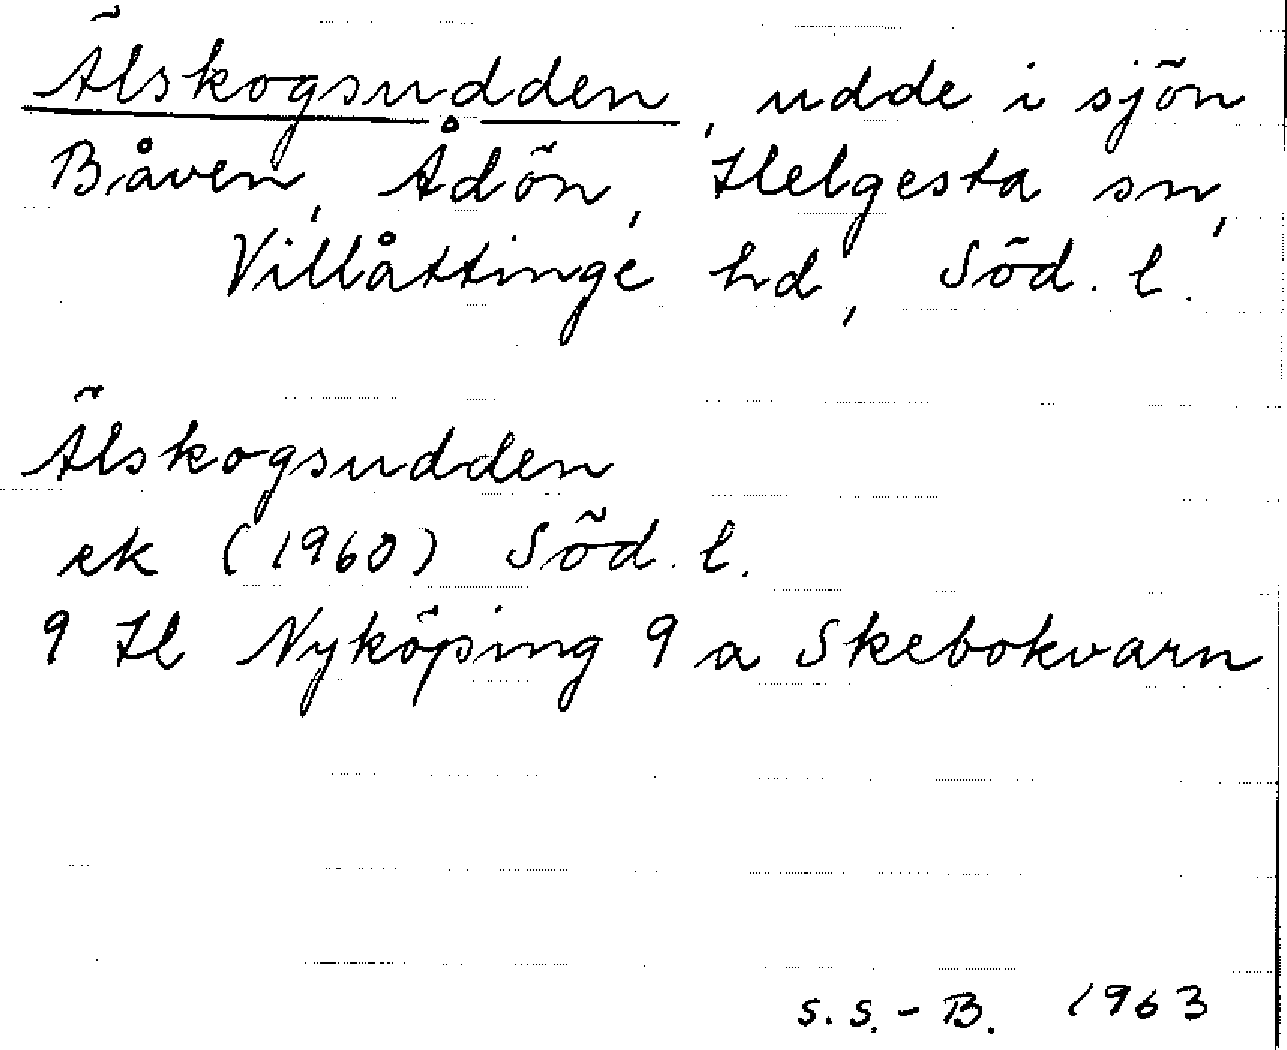 Älskogsudden, udde i sjön
Båven, Ådön, Helgesta sn,
Villåttinge hd, Söd. l.
Älskogsudden
ek (1960) Söd. l.
9 H Nyköping 9 a Skebokvarn
S.S.-B. 1963